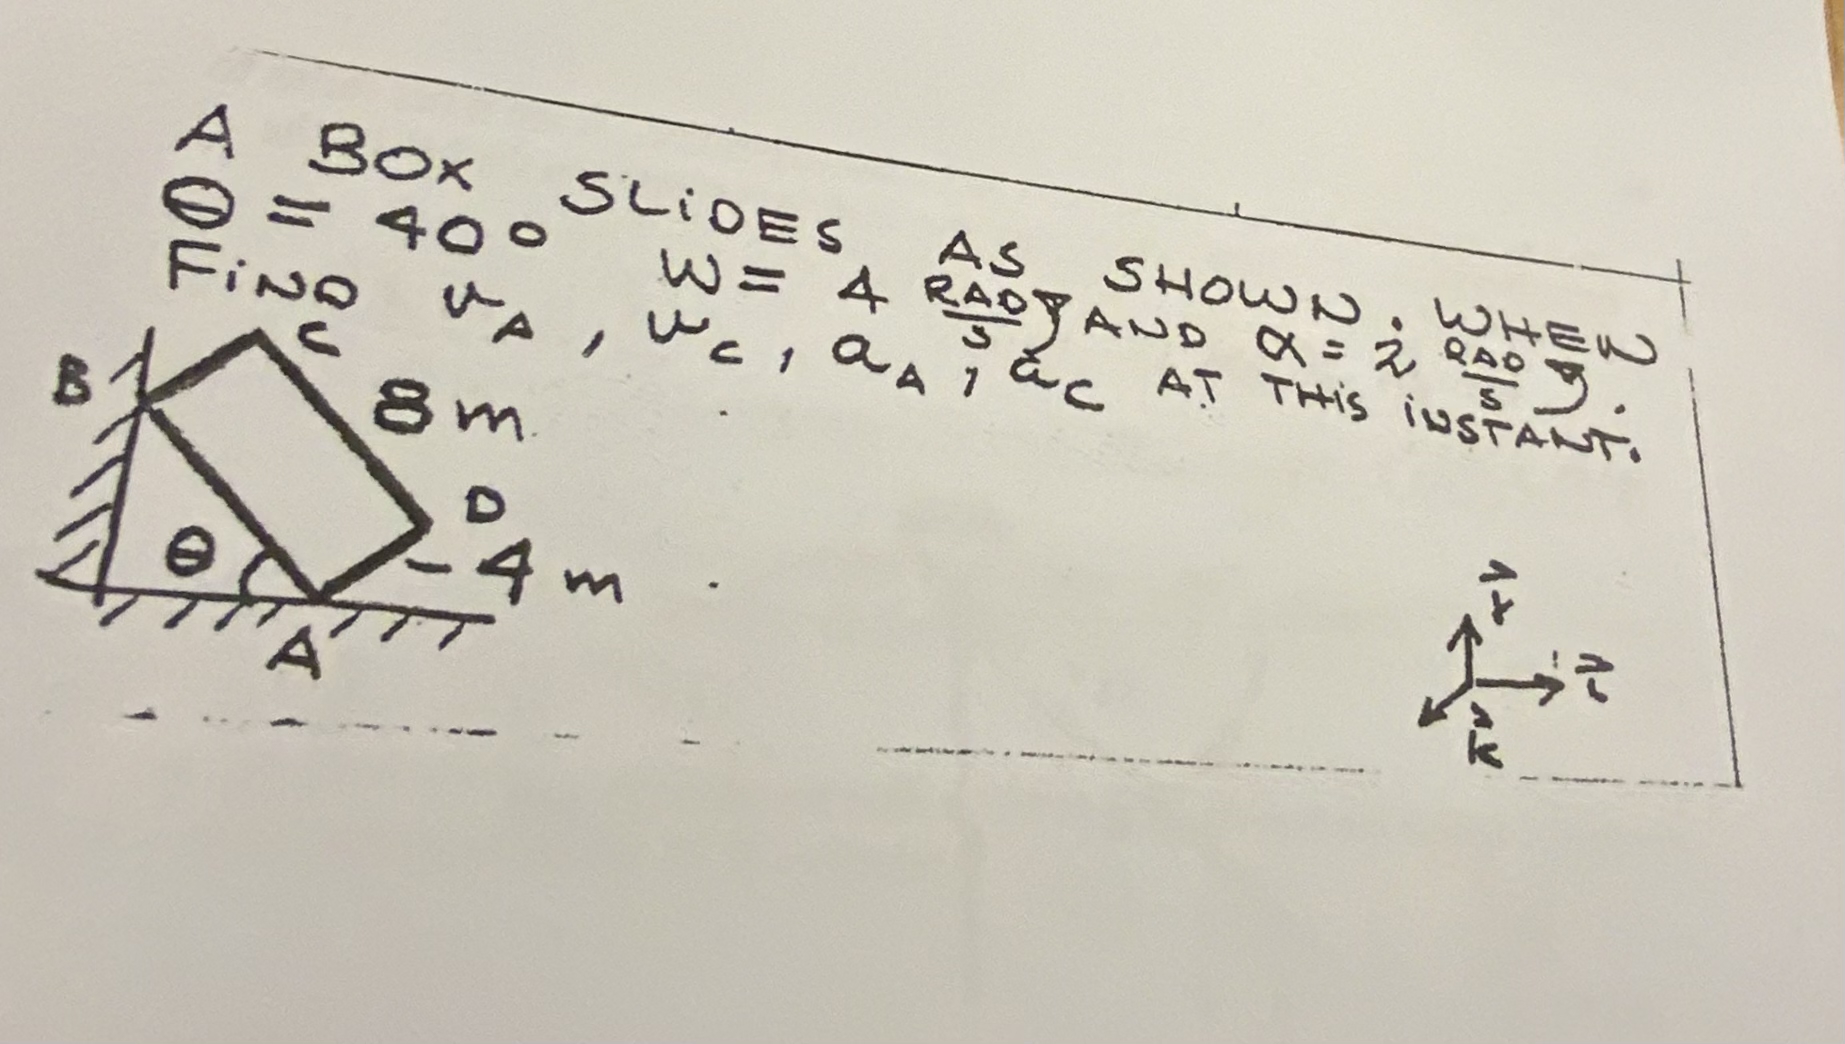 A BOX SLIDES AS SHOWN. WHEN
θ = 40° W = 4 RAD/S AND α = 2 RAD/S.
FIND v_A, v_C, a_A, a_C AT THIS INSTANT.
B
C
8 m
D
θ
4 m
A
i
k